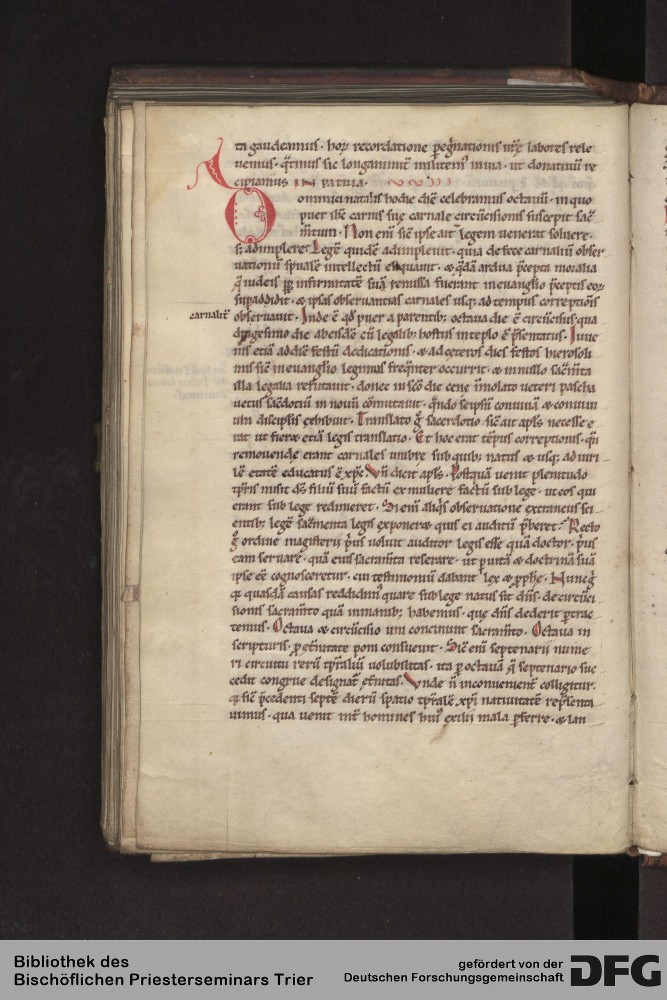 ta gaudeamus. hoꝝ recordatione ꝑeg̃nationis nr̃ę labores rele
uemus. q̃tinus sic longanimit̃ militem᷒ in uia. ut donatiuũ re
cipiamus IN patria.
Ominici natalis hodie diẽ celebramus octauũ. in quo
puer ih̃c carnis suę carnale circũcisionis suscepit sac̃
m̃tum. Non eni͂ sic̃ ipse ait legem uenerat soluere.
s; adimplere. Legẽ quidẽ adimpleuit. quia de fece carnaliũ obser
uationũ sp̃uale intellectũ eliquauit. & q̃dã ardua p̃cepta moralia
q̃ iudeis ꝓpt̃ infirmitatẽ suã remissa fuerant in euangl̃io p̃ceptis eoꝝ
supaddidit. & ipsas obseruantias carnales usq; ad tempus correptiõis
carnalit̃
obseruauit. Inde ẽ qđ puer a parentib; octaua die ẽ circũcisus. qua
dragesimo die ab eisdẽ cũ legalib; hostiis in tẽplo ẽ p̃sentatus. Inue
nis etiã ad diẽ festũ dedicationis. & ad ceteros dies festos hierosoli
mis sic̃ in euangl̃io legimus freq̃nter occurrit. & in nullo sac̃m̃ta
illa legalia refutauit. donec in sc̃o die cene im̃olato ueteri pascha
uetus sac̃dotiũ in nouũ cõmutauit. q̃ndo seipsũ conuiuã & conuiui
um discip̃lis exhibuit. Translato g̃ sacerdotio sic̃ ait apl̃s necesse e
rat ut fieret etiã legis translatio. Et hoc erat tẽpus correptionis. q̃n
remouende erant carnales umbre sub quib; natus & usq; ad uiri
lẽ etatẽ educatus ẽ xp̃c. Vñ dicit apl̃s. Postquã uenit plenitudo
tp̃ris misit d̃s filiũ suũ factũ ex muliere factũ sub lege. ut eos qui
erant sub lege redimeret. Si eni͂ aliq̃s obseruatione extraneus sci
entib; legẽ sac̃menta legis exponeret. quis ei auditũ p̃beret? Recto
g̃ ordine magisterii p̃us uoluit auditor legis esse quã doctor. p̃us
eam seruare. quã eius sacram̃ta reserare. ut p̃ uitã & doctrinã suã
ipse eẽ cognosceretur. cui testimoniũ dabant lex & ꝓph̃e. Hunc g̃
& quasdã causas reddidim᷒ quare sub lege natus sit dñs. de circũci
sionis sacram̃to quã in manib; habemus. que dñs dederit pertrac
temus. Octaua & circũcisio un͂ concinunt sacram̃to. Octaua in
scripturis. ꝓ et̃nitate poni consueuit. Sic̃ eni͂ septenarii nume
ri circuitu rerũ tp̃raliũ uolubilitas. ita ꝑ octauã q̃ septenario suc
cedit congrue designat̃ et̃nitas. Vnde ñ inconuenient̃ colligitur.
q̃ sic̃ p̃cedenti septẽ dierũ spatio tp̃ralẽ xp̃i natiuitatẽ rep̃senta
uimus. qua uenit int̃ homines hui᷒ exilii mala p̃ferre. & lan
Bibliothek des
Bischöflichen Priesterseminars Trier
gefördert von der
Deutschen Forschungsgemeinschaft
DFG